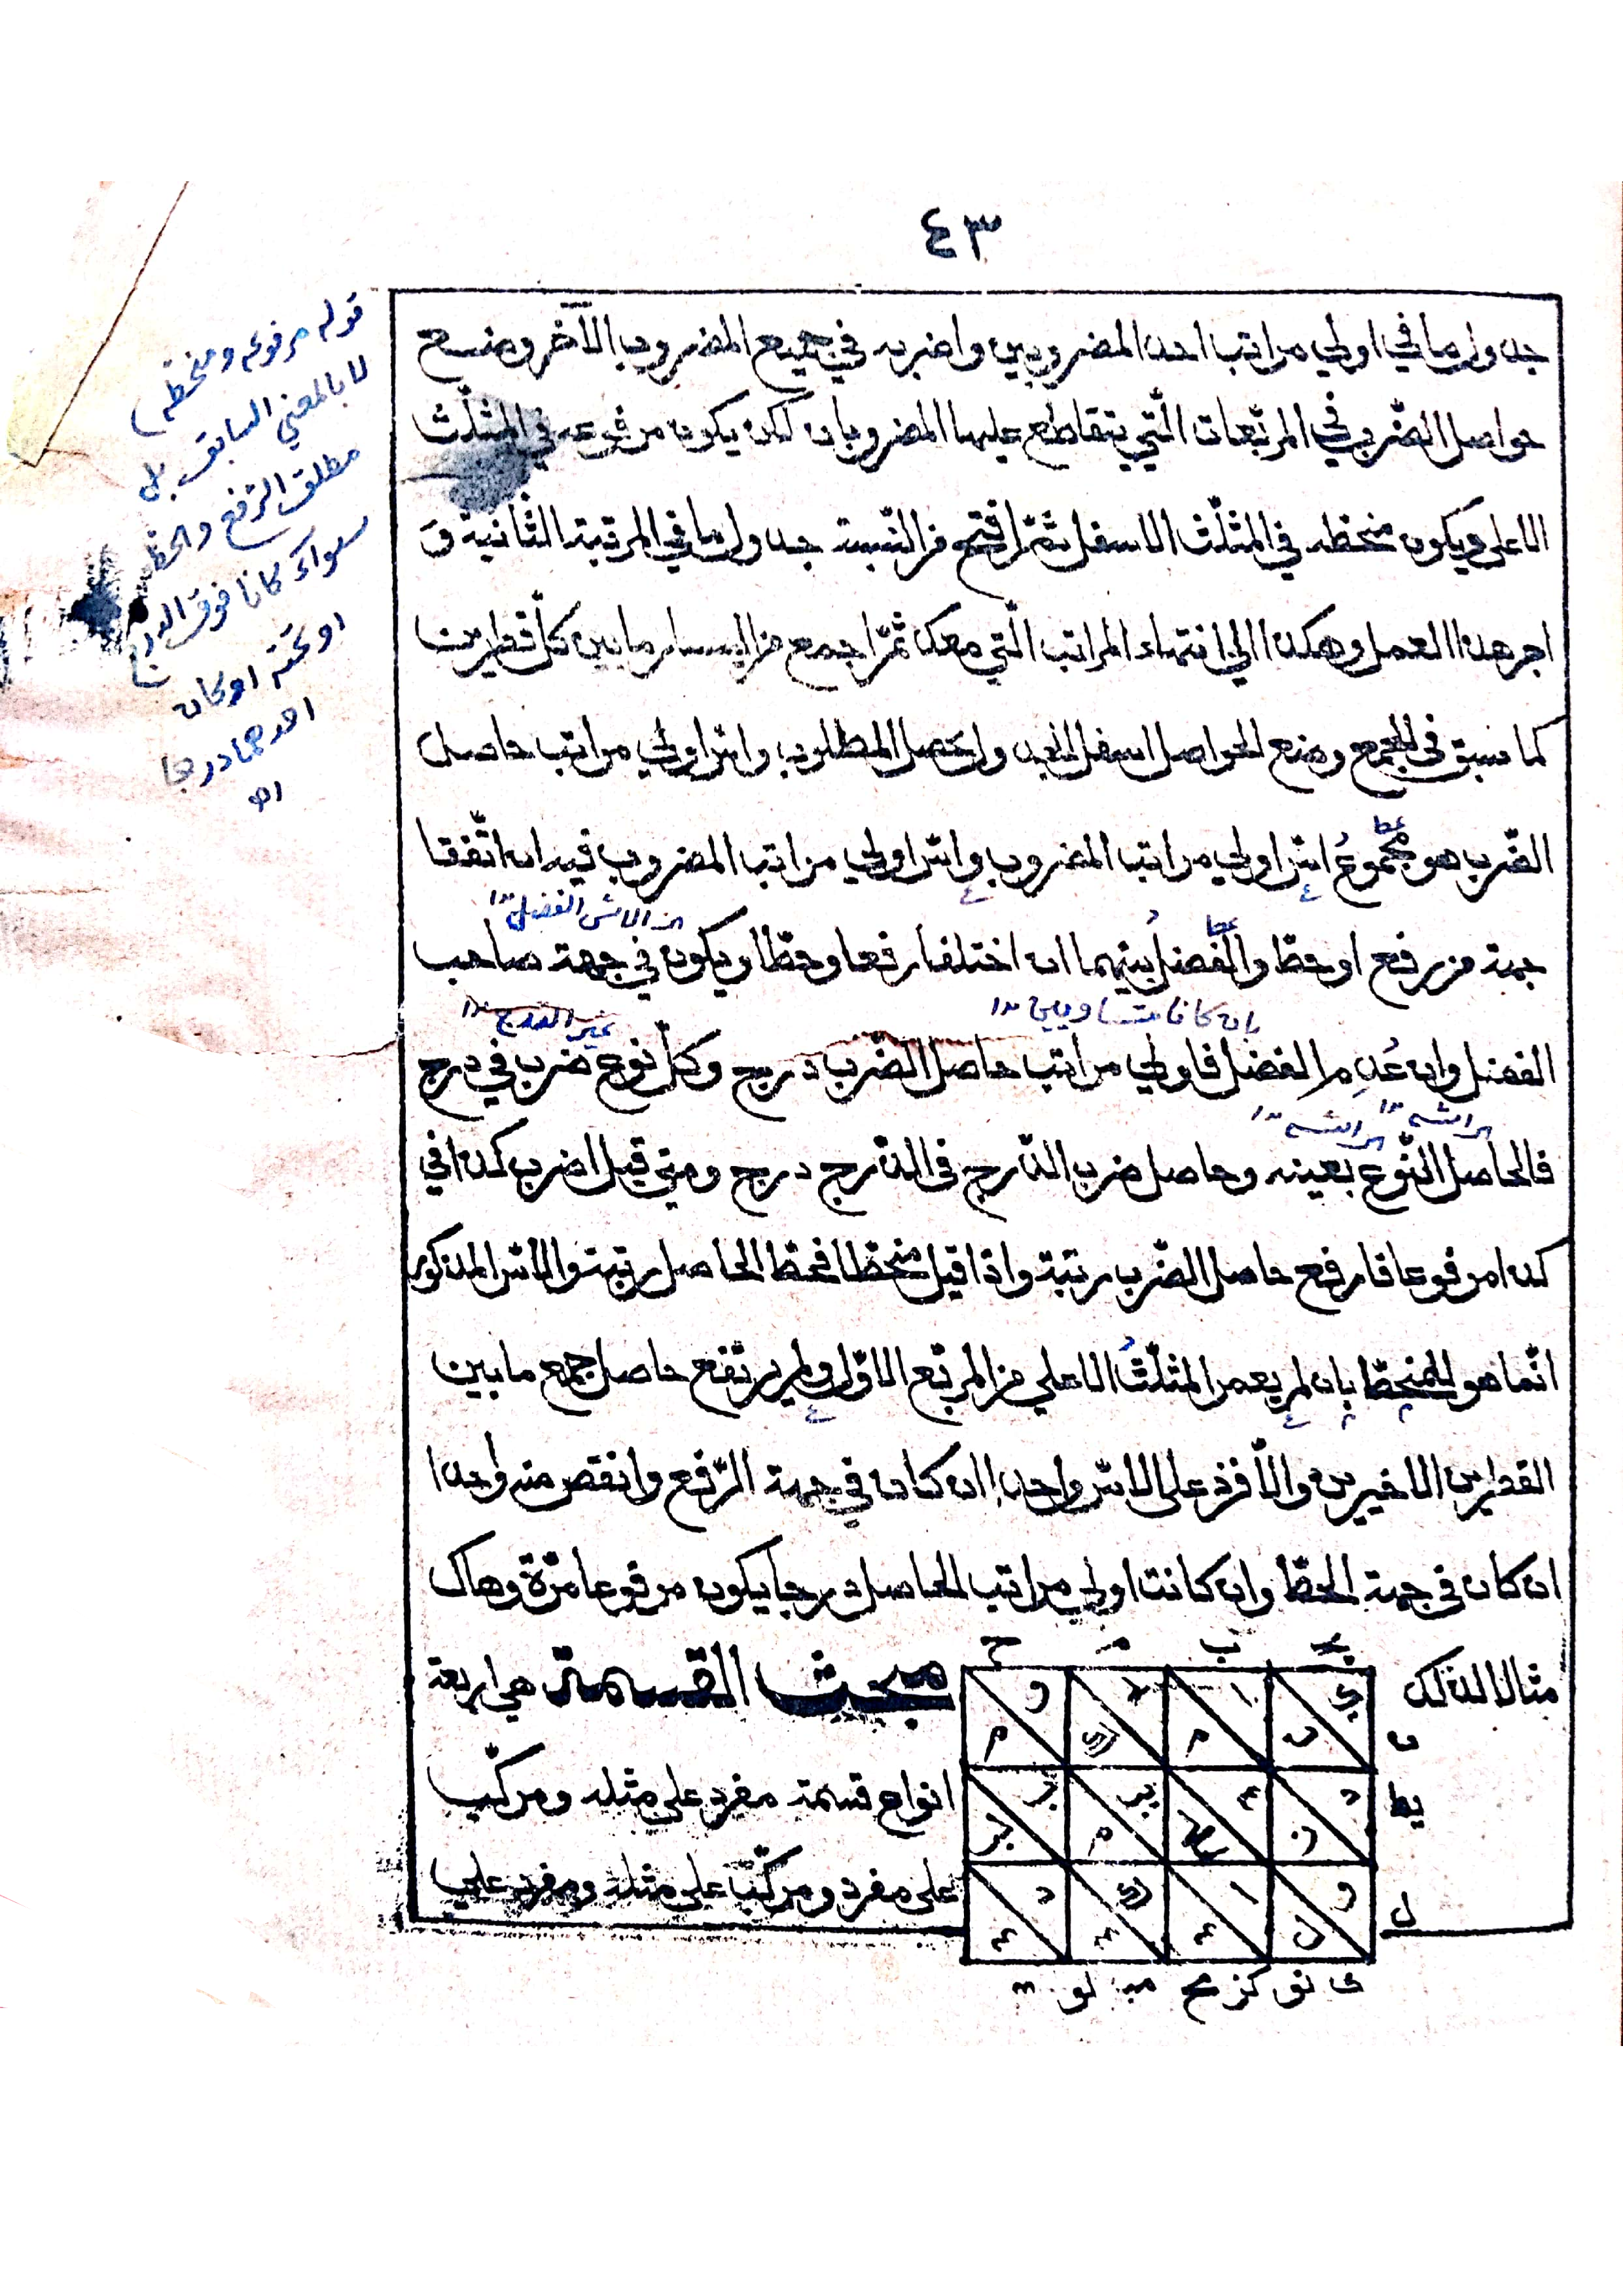 ٤٣
جدول ما في اولي مراتب احد المضروبين واضربه في جميع المضروب الآخر وضع
حواصل الضّرب في المربّعات الّتي يتقاطع عليها المضروبان لكن يكون مرفوعه في المثلّث
الاعلى ويكون منحطه في المثلّث الاسفل ثمّ افتح من النّسبة جدول ما في المرتبة الثّانية و
اجر هذا العمل وهكذا الي انتهاء المراتب الّتي معك ثمّ اجمع من اليسار ما بين كلّ قطرين
كما سبق في الجمع وضع الحواصل اسفل يحصل المطلوب واسّ اولي مراتب حاصل
الضّرب هو مجموعُ اسّ اولي مراتب المضروب واسّ اولي مراتب المضروب فيه ان اتّفقا
جهة من رفع او حطّ والفضلُ بينهما ان اختلفا رفعا وحطّا ويكون في جهة صاحب
الفضل وان عُدِم الفضل فاولي مراتب حاصل الضّرب درج وكلّ نوع ضرب في درج
فالحاصل النّوع بعينه وحاصل ضرب الدّرج في الدّرج درج ومتي قيل اضرب كذا في
كذا مرفوعا فارفع حاصل الضّرب رتبة واذا قيل منحطّا فحط الحاصل رتبة والاسّ المذكور
انّما هو للمنحطّ بان لم يعمر المثلّثُ الاعلي من المربّع الاوّل ولم يرتفع حاصل جمع ما بين
القطرين الاخيرين والّا فزد على الاسّ واحدا ان كان في جهة الرّفع وانقص منه واحدا
ان كان في جهة الحطّ وان كانت اولي مراتب الحاصل درجا يكون مرفوعا مرّة وهاك
مثالا لذلك
مبحث القسمة هي اربعة
انواع قسمة مفرد علي مثله ومركّب
على مفرد ومركّب على مثله ومفرد علي
قوله مرفوعه ومنحطه
لا بالمعني السابق بل
مطلق الرّفع والحط
سواء كانا فوق الدرج
او تحته او كان
احدهما درجا
اهـ